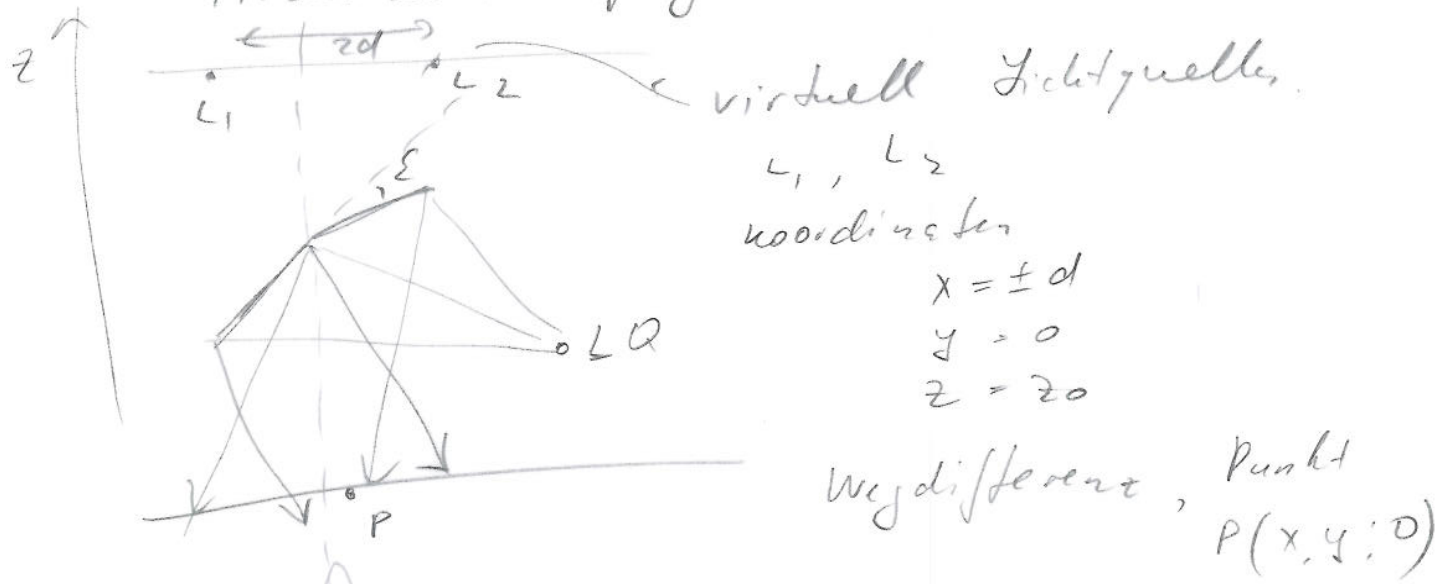 z
2d
L1
L2
virtuell Lichtquellen
L1, L2
ε
koordinaten
x = ± d
y = 0
z = z0
LQ
Wegdifferenz, Punkt
P(x,y;0)
P